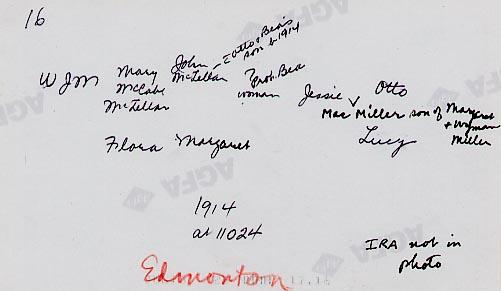 16
Otto + Bea's
son b 1914
W J M Mary McCabe McKellar
John McKellar
? prob. Bea
woman
Jessie
Otto
Mac Miller son of Margaret + Wyman Miller
Flora Margaret
Lucy
1914
at 11024
IRA not in
photo
Edmonton
AGFA
AGFA
AGFA
AGFA